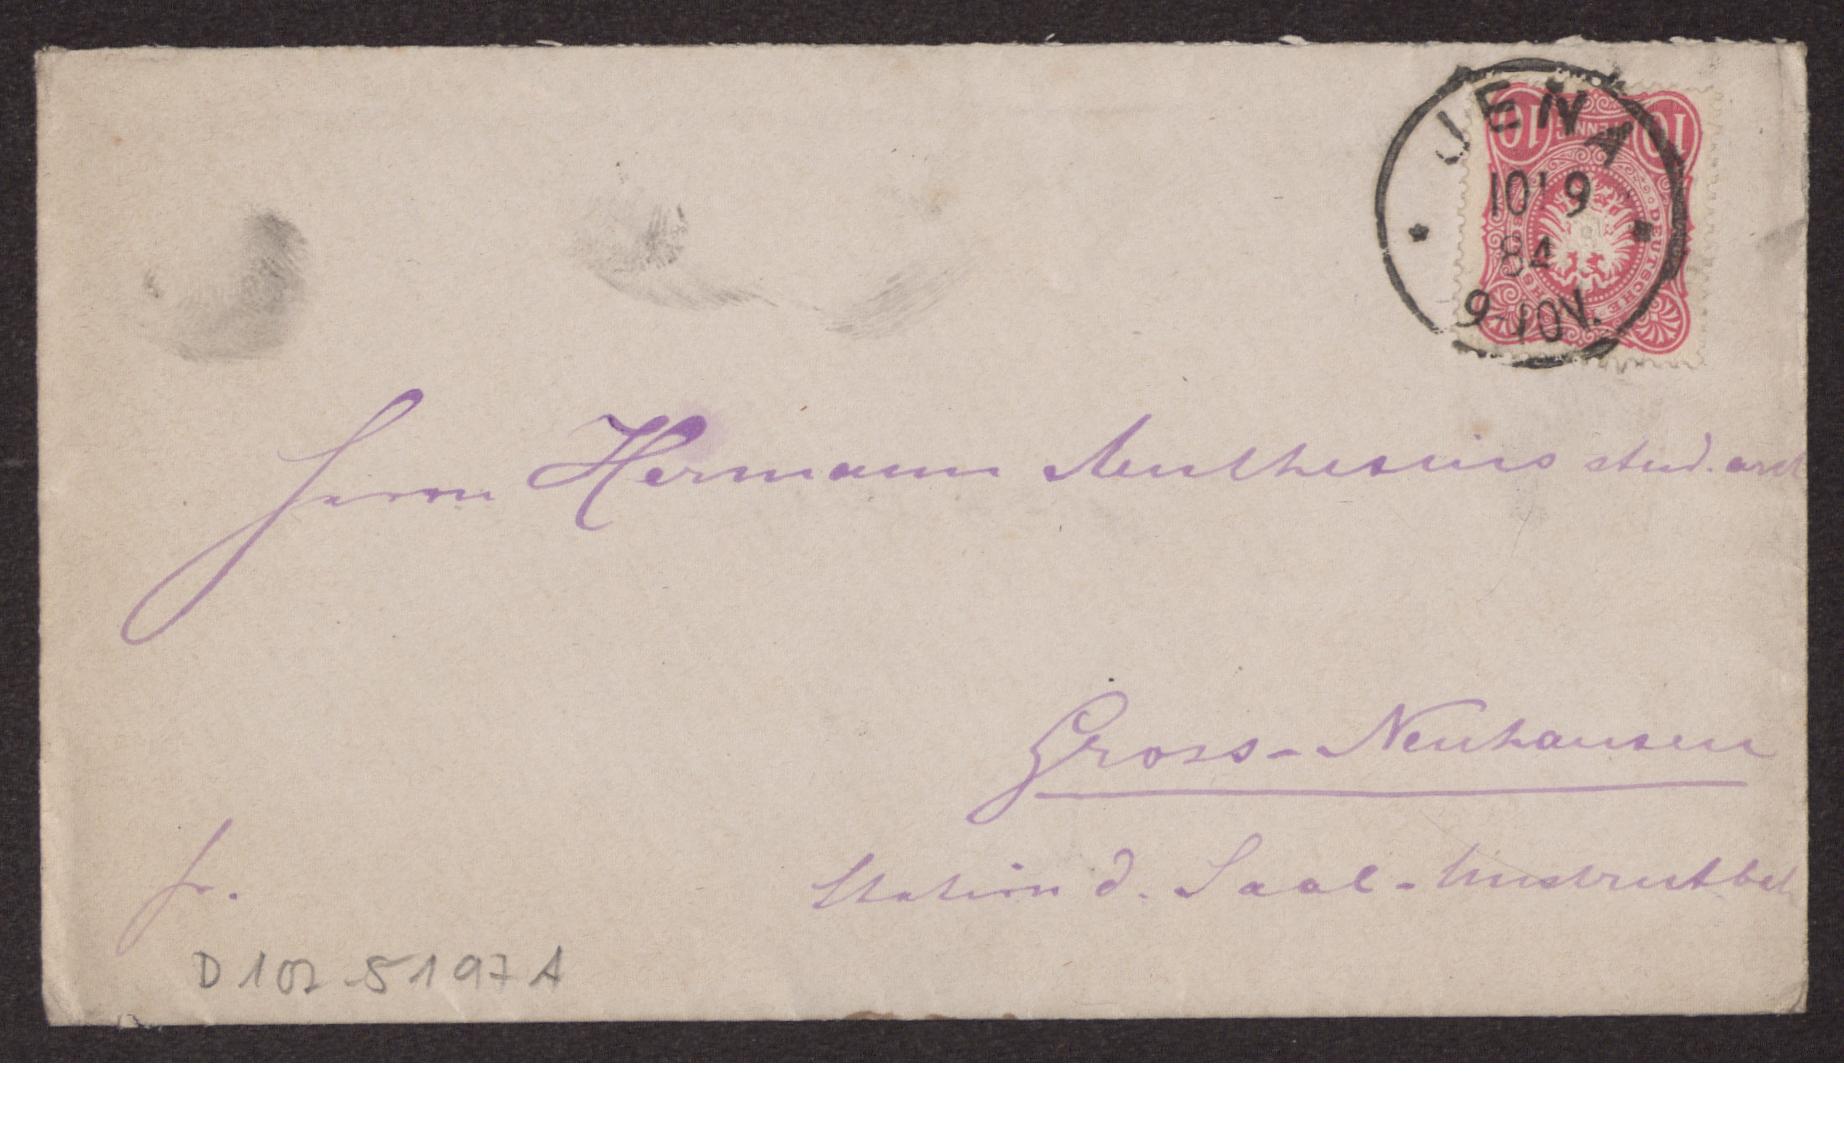 JENA
10 9
84
9-10V.
10 PFENNIG 10
DEUTSCHE
Herrn Hermann Muthesius stud. arch
Gross-Neuhausen
fr.
Station d. Saal-Unstrutbah
D 102-5197A